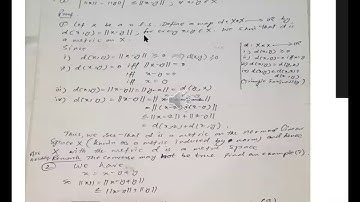 Proof
① Let X be a n.l.s. Define a map d: X×X → ℝ by
d(x,y) = ||x-y||, for every x,y ∈ X. We show that d is
a metric on X.
Since
i) d(x,y) = ||x-y|| ≥ 0 ⇒ d(x,y) ≥ 0
ii) d(x,y) = 0 iff ||x-y|| = 0
iff x-y = 0
iff x = y
iii) d(x,y) = ||x-y|| = ||y-x|| = d(y,x)
iv) d(x,y) = ||x-y||
= ||(x-z)+(z-y)||
≤ ||x-z|| + ||z-y||
= d(x,z) + d(z,y).
d: X×X → ℝ
i) d(x,y) ≥ 0
Thus, we see that d is a metric on the normed linear
space X (known as a metric induced by norm) and hence
X with the metric d is a metric space
Remark The converse may not be true. Find an example (?)
② We have
x = x-y+y
⇒ ||x|| = ||x-y+y||
≤ ||x-y|| + ||y||